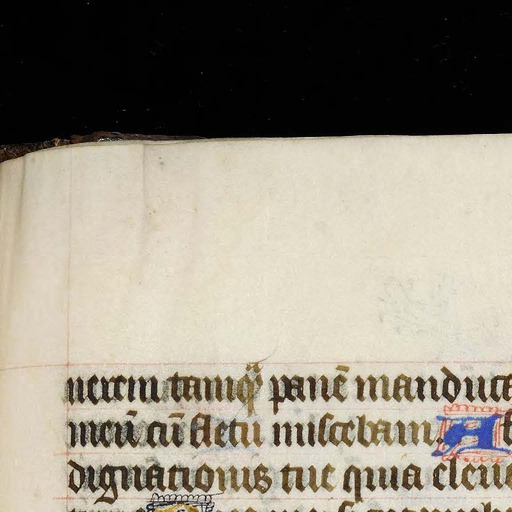 nerem tamq̃ panē manduca
meū cū fletu miscebam. A f
dignationis tue quia eleua